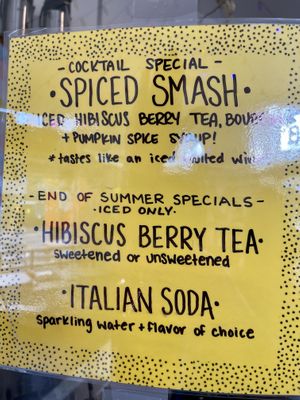 - COCKTAIL SPECIAL -
• SPICED SMASH •
ICED HIBISCUS BERRY TEA,
+ PUMPKIN SPICE SYRUP!
* tastes like an iced mulled
- END OF SUMMER SPECIALS -
• ICED ONLY •
• HIBISCUS BERRY TEA •
sweetened or unsweetened
• ITALIAN SODA •
sparkling water + flavor of choice